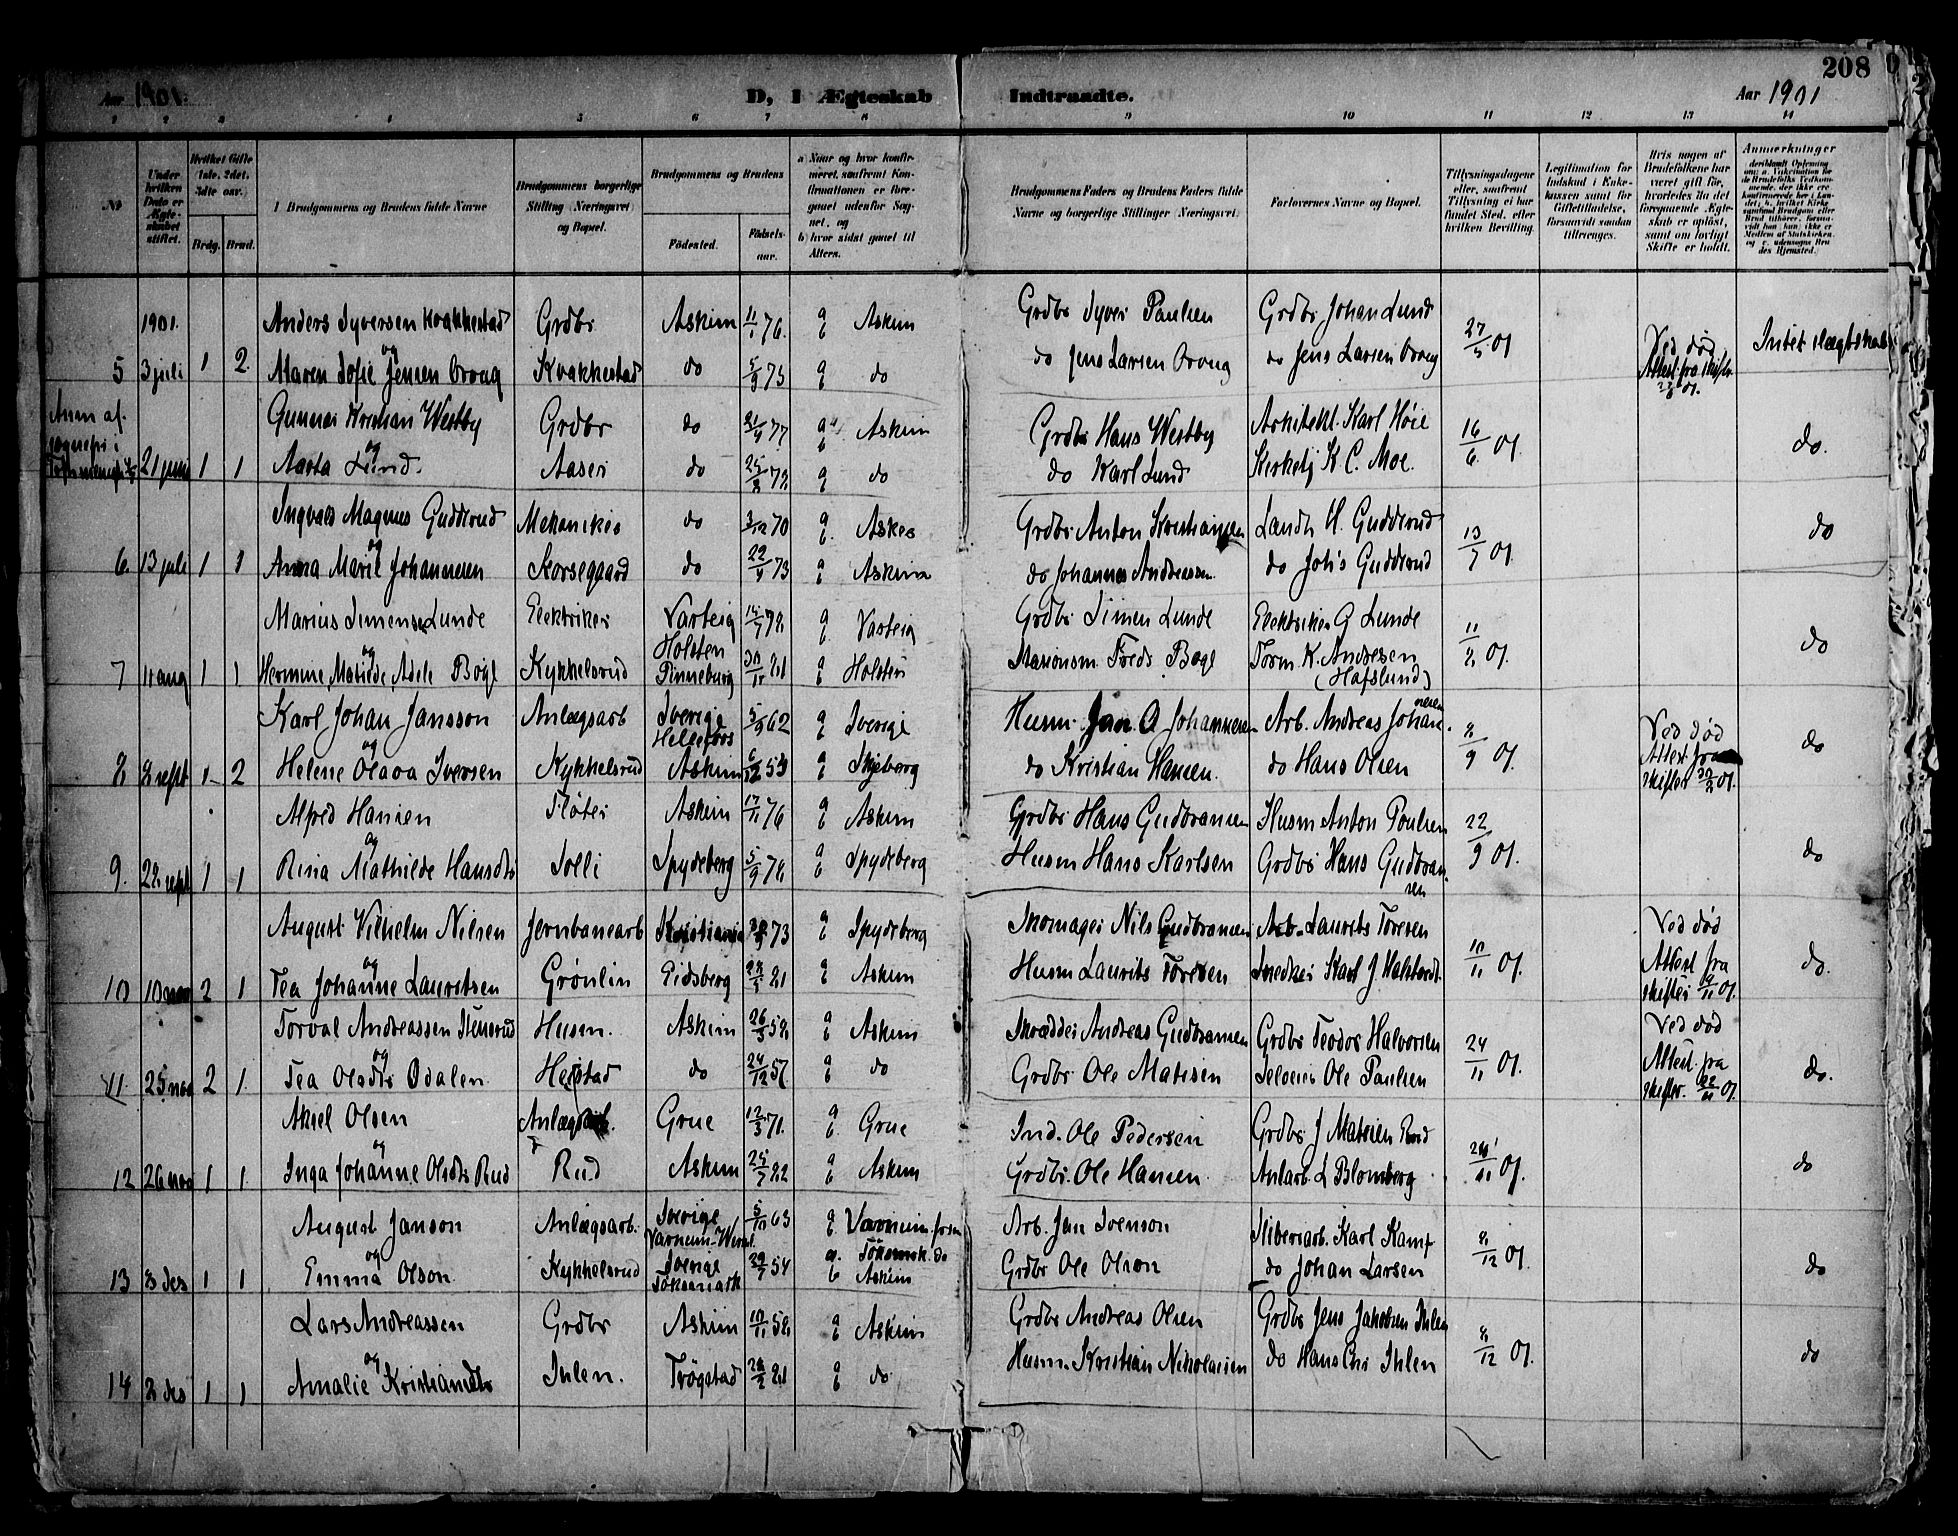 Aar 1901.
D, I Ægteskab Indtraadte.
208
Aar 1901
1 2 3 4 5 6 7 8 9 10 11 12 13 14
No
Under hvilken Dato er Ægteskabet stiftet.
Hvilket Gifte (1ste, 2det, 3die osv.)
Brdg. Brud.
Brudgommens og Brudens fulde Navne
Brudgommens borgerlige Stilling (Næringsvei) og Bopæl.
Brudgommens og Brudens
Fødested. Fødselsaar.
a) Naar og hvor konfirmeret, samfremt Konfirmationen er foregaaet udenfor Sognet, og
b) hvor sidst gaaet til Alters.
Brudgommens Faders og Brudens Faders fulde Navne og borgerlige Stillinger (Næringsvei)
Forlovernes Navne og Bopæl.
Tillysningsdagene eller, samfremt Tillysning ei har fundet Sted, efter hvilken Bevilling.
Legitimation for Indskud i Enkekassen samt for Giftetilladelse, forsaavidt saadan tiltrænges.
Hvis nogen af Brudefolkene har været gift før, hvorledes da det foregaaende Ægteskab er opløst, samt om lovligt Skifte er holdt.
Anmærkninger
1901.
Anders Syversen Kvakkestad Grdbr Askim 11/1 76. a b Askim Grdbr Syver Paulsen Grdbr Johan Lund 27/5 01 Ved død Intet slægtskab
5 3 juli 1 2 og Maren Sofie Jensen Vrong Kvakkestad do 5/9 73 a b do do Jens Larsen Vrong do Jens Larsen Vrong Attest fra skifter
Gunnar Kristian Westby Grdbr do 77 a b Askim Grdbr Hans Westby Arkitekt Karl Høie 16/6 01. do.
21 juni 1 1 og Aasta Lund. Aaser do 25/8 78 a b do do Karl Lund Kirketj K C. Moe.
Ingvald Magnus Gudderud Mekaniker do 3/12 70 a b. Asker Grdbr Anton Kristiansen Landh H. Gudderud 13/7 01 do
6. 13 juli 1 1 og Anna Marie Johannesen Korsegaard do 22/4 73 a b Askim do Johannes Andreassen. do Johs Gudderud
Marius Simensen Lunde Elektriker Varteig 14/7 78 a b Varteig Grdbr Simen Lunde Elektriker G Lunde 11/8 01. do
7 11 aug 1 1 og Hermine, Matilde, Adele Bøgl Kykkelsrud Holsten Pinneburg 81 a b Holsten Fredr Bøgl Form. K. Andresen (Hafslund)
Karl Johan Jansson Anlægsarb Sverige 5/9 62 a b Sverige Husm. Jan. A Johannesen Arb. Andreas Johannesen 8/9 01. Ved død do
8 8 sept 1 2 og Helene Olava Iversen Kykkelsrud Askim 6/12 53 a b Skjeberg do Kristian Hansen. do Hans Olsen Attest fra skifter
Alfred Hansen Fløter Askim 17/11 76 a b Askim Grdbr Hans Gudbransen Husm Anton Poulsen 22/9 01. do
9. 22 sept 1 1 og Rina Mathilde Hansdtr Solli Spydeberg 5/9 78 a b Spydeberg Husm Hans Karlsen Grdbr Hans Gudbransen
August Vilhelm Nilsen Jernbanearb Kristiania 73 a b Spydeberg Skomager Nils Gudbransen Arb. Laurits Toresen 10/11 01. Ved død do.
10 10 nov 2 1 og Tea Johanne Lauritsen Grønlin Eidsberg 81 a b Askim Husm Laurits Toresen Snedker Karl J. Attest fra skifter
Torval Andreassen Stensrud Husm. Askim 26/3 58 a b Askim Skrædder Andreas Gudbransen Grdbr Teodor Halvorsen 24/11 01. Ved død do.
11. 25 nov 2 1. og Tea Olsdtr Ødalen Heistad do 24/12 57 a b do Grdbr. Ole Matisen Seleier Ole Paulsen Attest. fra skifter.
Aksel Olsen Anlægsarb. Grue 12/3 71. a b Grue Ind. Ole Pedersen Grdbr J Matsien Rud 01. do
12 26 nov 1 1. og Inga Johanne Olsdtr Rud Rud Askim 25/7 82 a b Askim Grdbr. Ole Hansen Anlarb. L Blomberg
August Janson Anlægsarb. Sverige 5/10 63 a b Varnum Arb. Jan Svenson Sliberiarb. Karl Kamf 8/12 01. do
13 8 des 1 1 og Emma Olson Kykkelsrud Sverige Töksmark 29/7 54 a. Töksmark. do b Askim Grdbr Ole Olson do Johan Larsen
Lars Andreassen Grdbr Askim 10/11 58 a b Askim Grdbr Andreas Olsen Grdbr Jens Jakobsen Ihlen 8/12 01. do
14 8 des 1 1 og Amalie Kristiansdtr Ihlen. Trøgstad 81 a b do Husm. Kristian Nikolaisen do Hans Chr Ihlen